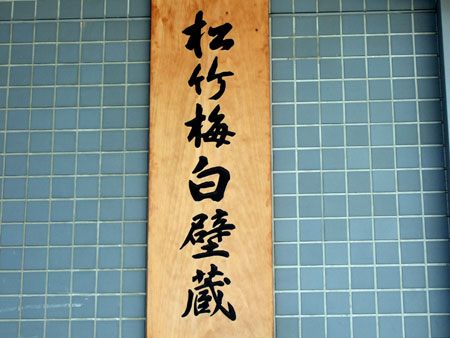 松竹梅白壁蔵